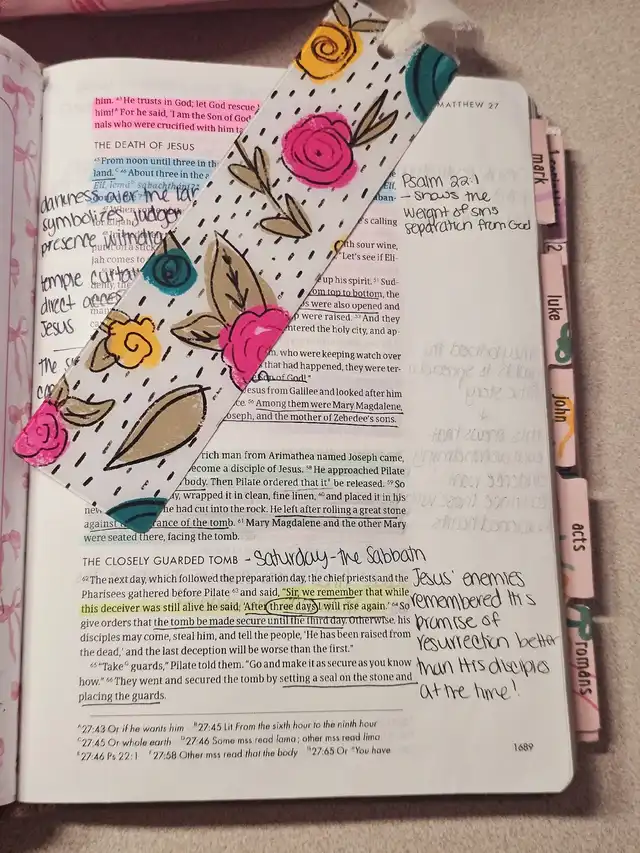 MATTHEW 27
him. 43 He trusts in God; let God rescue
him!" For he said, 'I am the Son of God
nals who were crucified with him
THE DEATH OF JESUS
45 From noon until three in the
land. 46 About three in the a
Elí, lemá sabachtháni?"
darkness over the
symbolizes
presence
temple
direct
Jesus
Psalm 22:1
- shows the
weight of sins
separation from God
's calling
with sour wine,
"Let's see if Eli-
up his spirit. 51 Sud-
om top to bottom, the
s were also opened and
p were raised. 53 And they
ntered the holy city, and ap-
who were keeping watch over
that had happened, they were ter-
Son of God!"
esus from Galilee and looked after him
ce. 56 Among them were Mary Magdalene,
oseph, and the mother of Zebedee's sons.
rich man from Arimathea named Joseph came,
ecome a disciple of Jesus. 58 He approached Pilate
body. Then Pilate ordered that it be released. 59 So
y, wrapped it in clean, fine linen, 60 and placed it in his
new he had cut into the rock. He left after rolling a great stone
against rance of the tomb. 61 Mary Magdalene and the other Mary
were seated there, facing the tomb.
THE CLOSELY GUARDED TOMB - Saturday - the Sabbath
62 The next day, which followed the preparation day, the chief priests and the
Pharisees gathered before Pilate 63 and said, "Sir, we remember that while
this deceiver was still alive he said, 'After three days I will rise again.' 64 So
give orders that the tomb be made secure until the third day. Otherwise, his
disciples may come, steal him, and tell the people, 'He has been raised from
the dead,' and the last deception will be worse than the first."
65 "Take G guards," Pilate told them. "Go and make it as secure as you know
how." 66 They went and secured the tomb by setting a seal on the stone and
placing the guards.
Jesus' enemies
remembered his
promise of
resurrection better
than His disciples
at the time!
A 27:43 Or if he wants him B 27:45 Lit From the sixth hour to the ninth hour
C 27:45 Or whole earth D 27:46 Some mss read lama; other mss read lima
E 27:46 Ps 22:1 F 27:58 Other mss read that the body G 27:65 Or "You have
1689
mark
luke
john
acts
romans